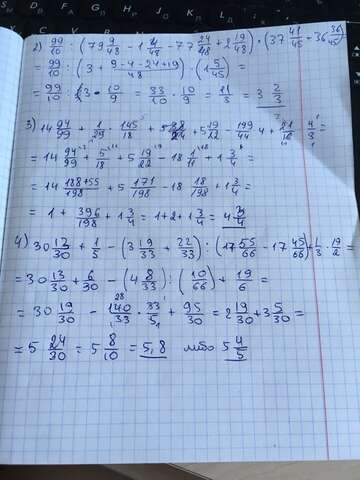 2) 99/10 : (79 9/48 - 1 4/48 - 77 24/48 + 2 19/48) · (37 41/45 - 36 36/45) =
= 99/10 : (3 + (9-4-24+19)/48) · (1 5/45) =
= 99/10 : 3 · 10/9 = 33/10 · 10/9 = 11/3 = 3 2/3
3) 14 94/99 + 1/29 · 145/18 + 5 19/22 - 199/44 · 4 + 21/16 · 4/3 =
= 14 94/99 + 5/18 + 5 19/22 - 18 1/11 + 1 3/4 =
= 14 (188+55)/198 + 5 171/198 - 18 18/198 + 1 3/4 =
= 1 + 396/198 + 1 3/4 = 1+2+1 3/4 = 4 3/4
4) 30 13/30 + 1/5 - (3 19/33 + 22/33) : (17 55/66 - 17 45/66) + 1/3 · 19/2 =
= 30 13/30 + 6/30 - (4 8/33) : (10/66) + 19/6 =
= 30 19/30 - 140/33 · 33/5 + 95/30 = 2 19/30 + 3 5/30 =
= 5 24/30 = 5 8/10 = 5,8 либо 5 4/5